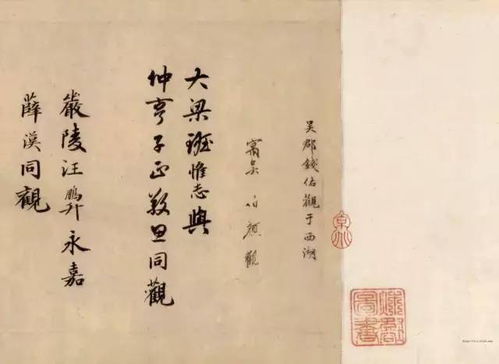 吳郡錢佑觀于西湖
觀
大梁班惟志與
仲亨子正敬旦同觀
嚴陵汪鵬升永嘉
薛漢同觀